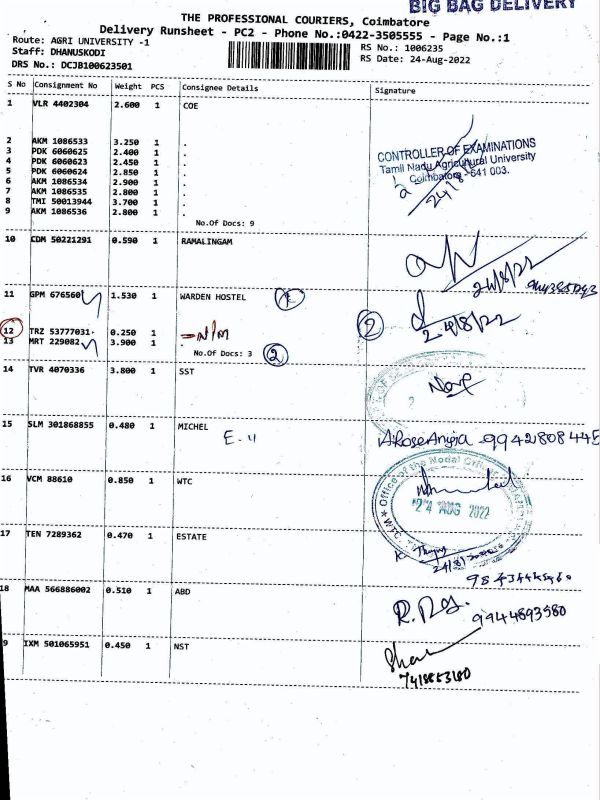 BIG BAG DELIVERY
THE PROFESSIONAL COURIERS, Coimbatore
Delivery Runsheet - PC2 - Phone No.:0422-3505555 - Page No.:1
Route: AGRI UNIVERSITY -1
Staff: DHANUSKODI
DRS No.: DCJB100623501
RS No.: 1006235
RS Date: 24-Aug-2022
S No Consignment No Weight PCS Consignee Details Signature
1 VLR 4402304 2.600 1 COE
2 AKM 1086533 3.250 1 .
3 PDK 6060625 2.400 1 .
4 PDK 6060623 2.450 1 .
5 PDK 6060624 2.850 1 .
6 AKM 1086534 2.900 1 .
7 AKM 1086535 2.800 1 .
8 TMI 50013944 3.700 1 .
9 AKM 1086536 2.800 1 .
No.Of Docs: 9
CONTROLLER OF EXAMINATIONS
Tamil Nadu Agricultural University
Coimbatore - 641 003.
10 CDM 50221291 0.590 1 RAMALINGAM
24/8/22
11 GPM 676560 1.530 1 WARDEN HOSTEL 1
12 TRZ 53777031 0.250 1 - N/M
13 MRT 229082 3.900 1
No.Of Docs: 3 2
2
24/8/22
14 TVR 4070336 3.800 1 SST
15 SLM 301868855 0.480 1 MICHEL
E-4
16 VCM 88610 0.850 1 WTC
Office of the Nodal Officer
24 AUG 2022
WTC
17 TEN 7289362 0.470 1 ESTATE
18 MAA 566886002 0.510 1 ABD
9944893580
9 IXM 501065951 0.450 1 NST